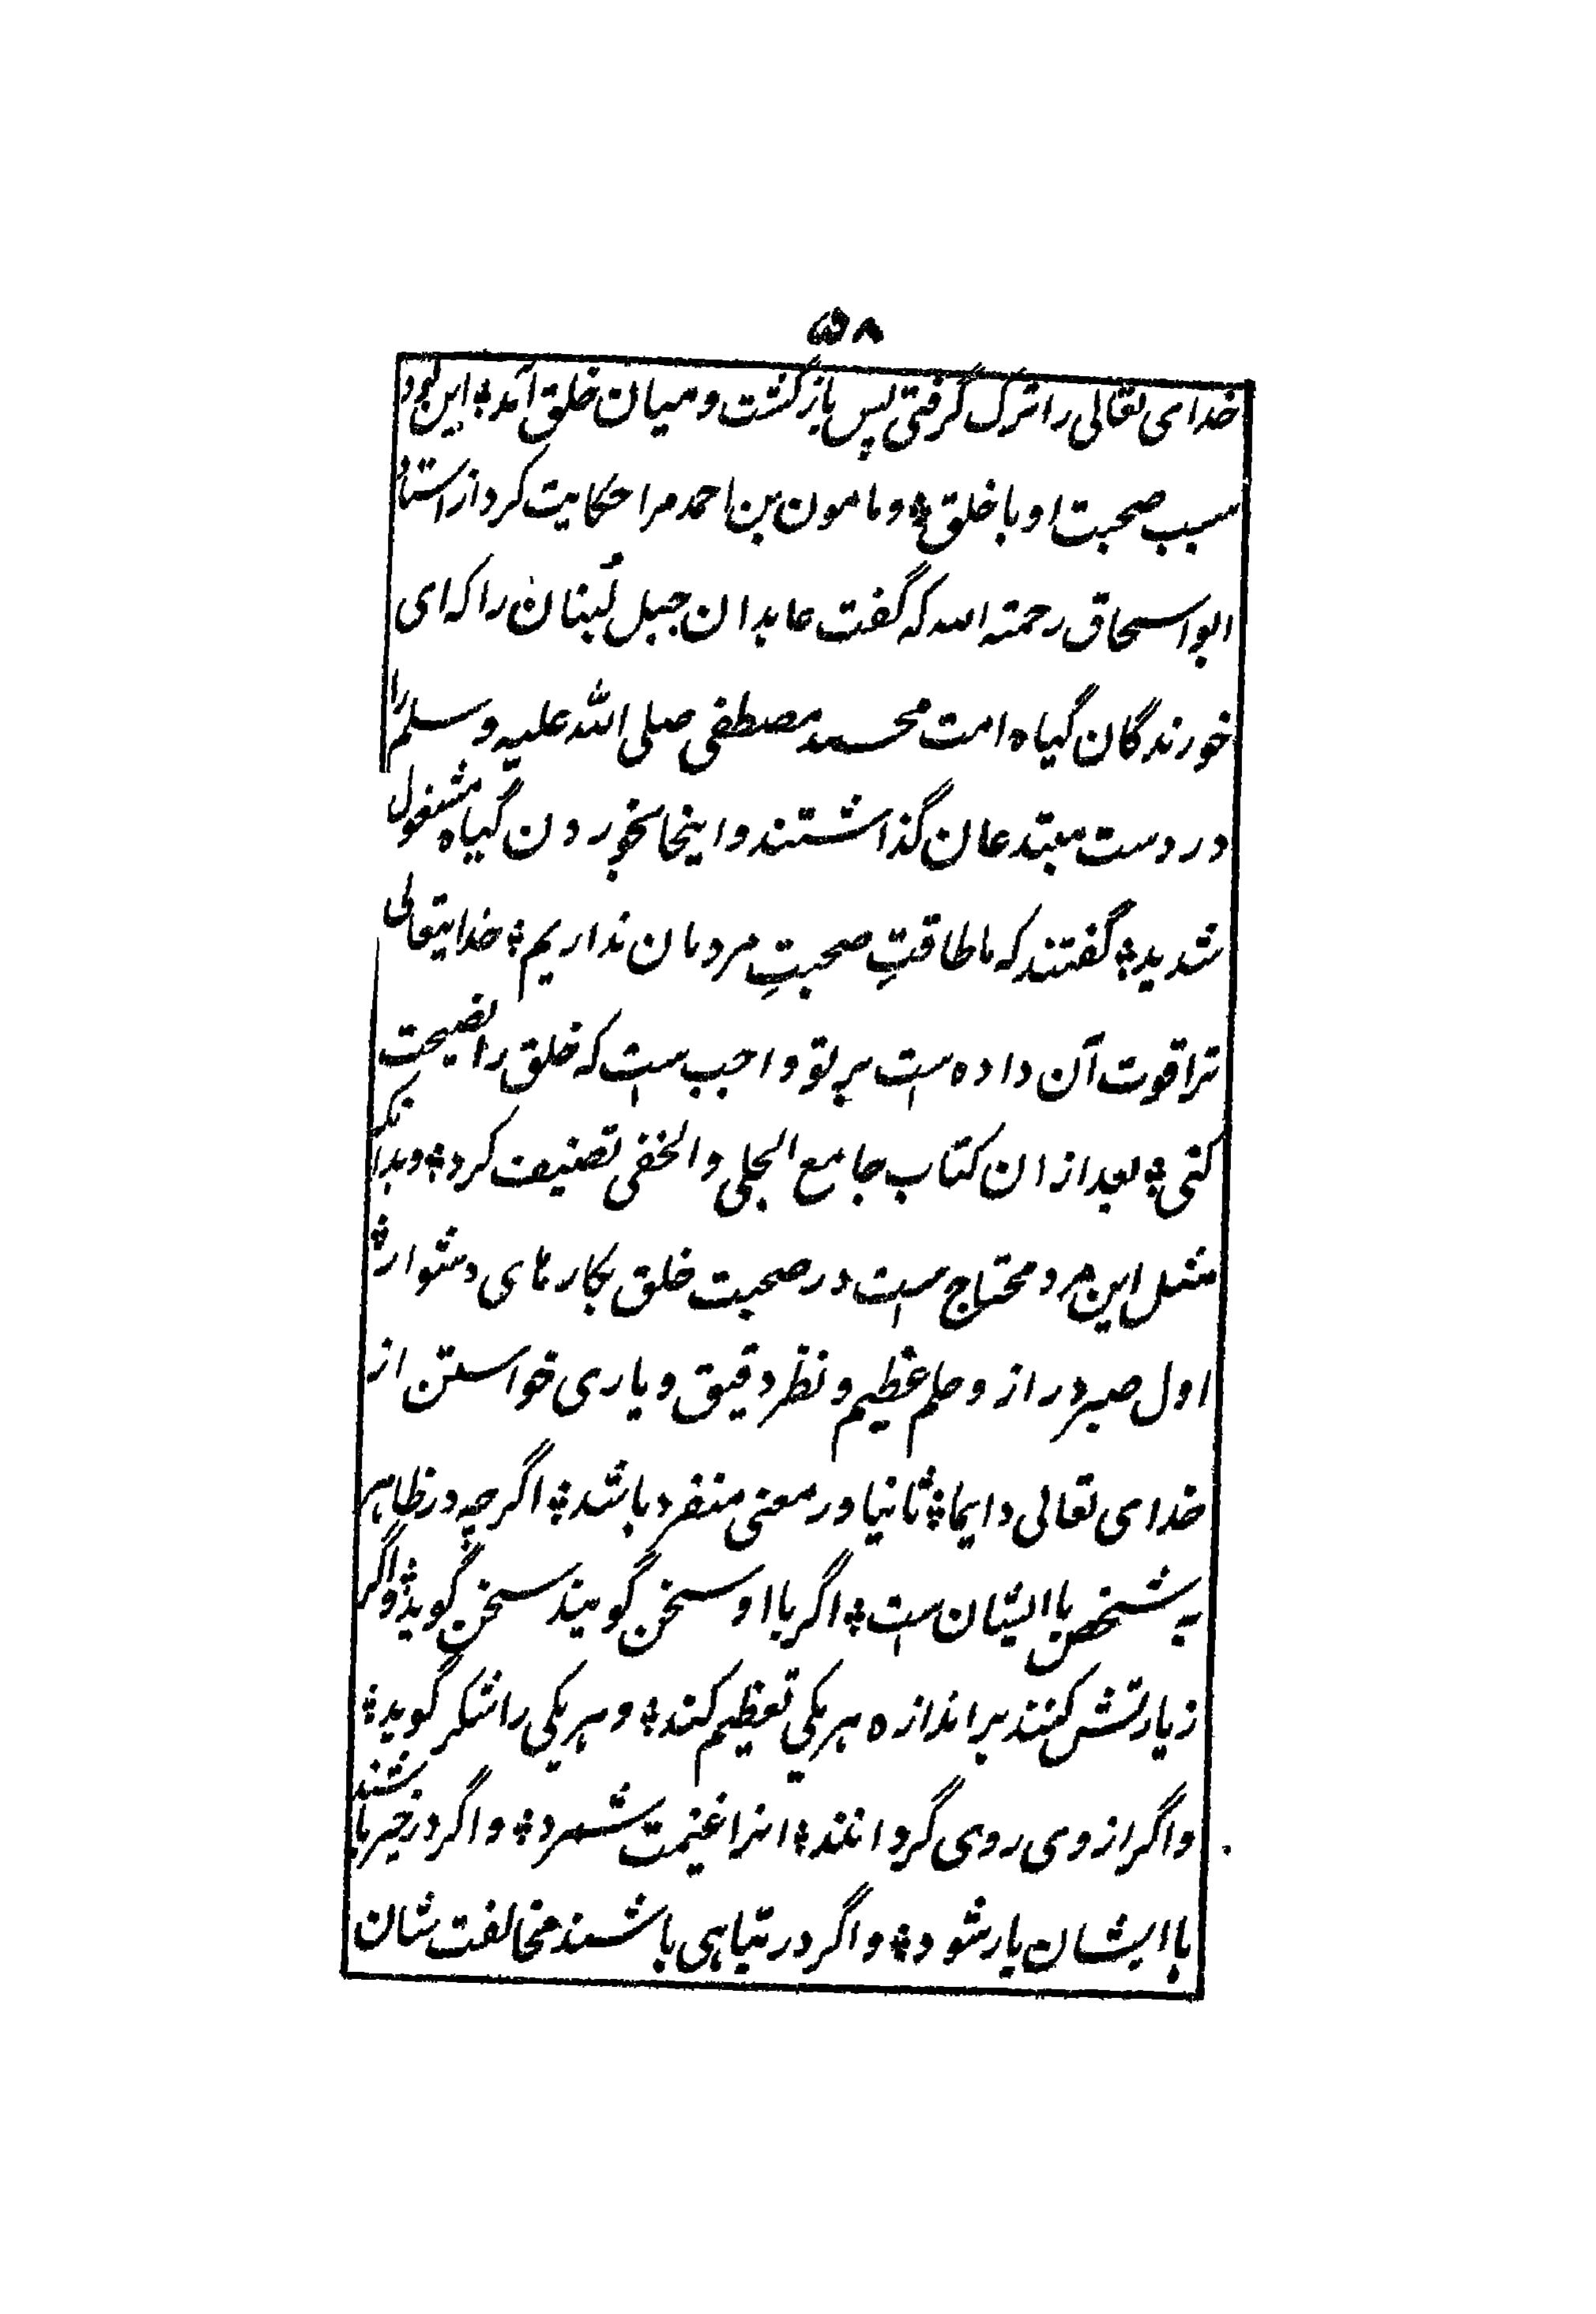 ۵۸
خدای تعالی را ترک گرفتی پس بازگشت و میان خلق آمد؞ این بود
سبب صحبت او با خلق؞ و مامون بن احمد مرا حکایت کرد از استاد
ابو اسحاق رحمته الله که گفت عابدان جبل لُبنان را که ای
خورندگان گیاه امت محمد مصطفی صلی الله علیه وسلم را
در دست مبتدعان گذاشتند و اینجا بخوردن گیاه مشغول
شدید؞ گفتند که ما طاقتِ صحبتِ مردمان نداریم؞ خدایتعالی
ترا قوت آن داده است بر تو واجب است که خلق را نصیحت
کنی؞ بعد از ان کتاب جامع الجلی و الخفی تصنیف کرد؞ و بدانکه
مثل این مرد محتاج است در صحبت خلق بکارهای دشوار؞
اول صبر دراز و حلم عظیم و نظر دقیق و یاری خواستن از
خدای تعالی دایما؞ ثانیا در معنی منفرد باشد؞ اگرچه در ظاهر
به شخص با ایشان است؞ اگر با او سخن گویند سخن گوید؞ و اگر
زیارتش کنند بر اندازه هر یکی تعظیم کند؞ و هر یکی را شکر گوید؞
و اگر از وی روی گردانند؞ انرا غنیمت شمرد؞ و اگر در خیر باشند
با ایشان یار شود؞ و اگر در تباهی باشند مخالفت شان